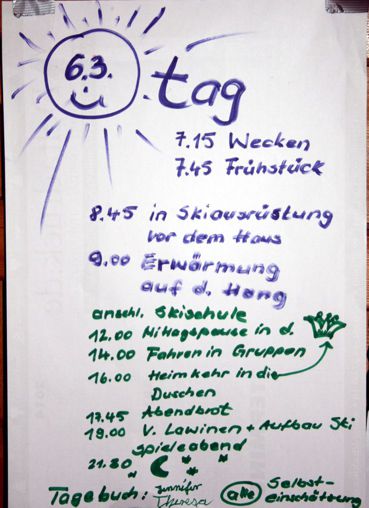 6.3. .tag
7.15 Wecken
7.45 Frühstück
8.45 in Skiausrüstung
vor dem Haus
9.00 Erwärmung
auf d. Hang
anschl. Skischule
12.00 Mittagspause in d.
14.00 Fahren in Gruppen
16.00 Heimkehr in die
Duschen
17.45 Abendbrot
19.00 V. Lawinen + Aufbau Ski
Spieleabend
21.30
Tagebuch: Jennifer
Theresa
alle Selbst-
einschätzung